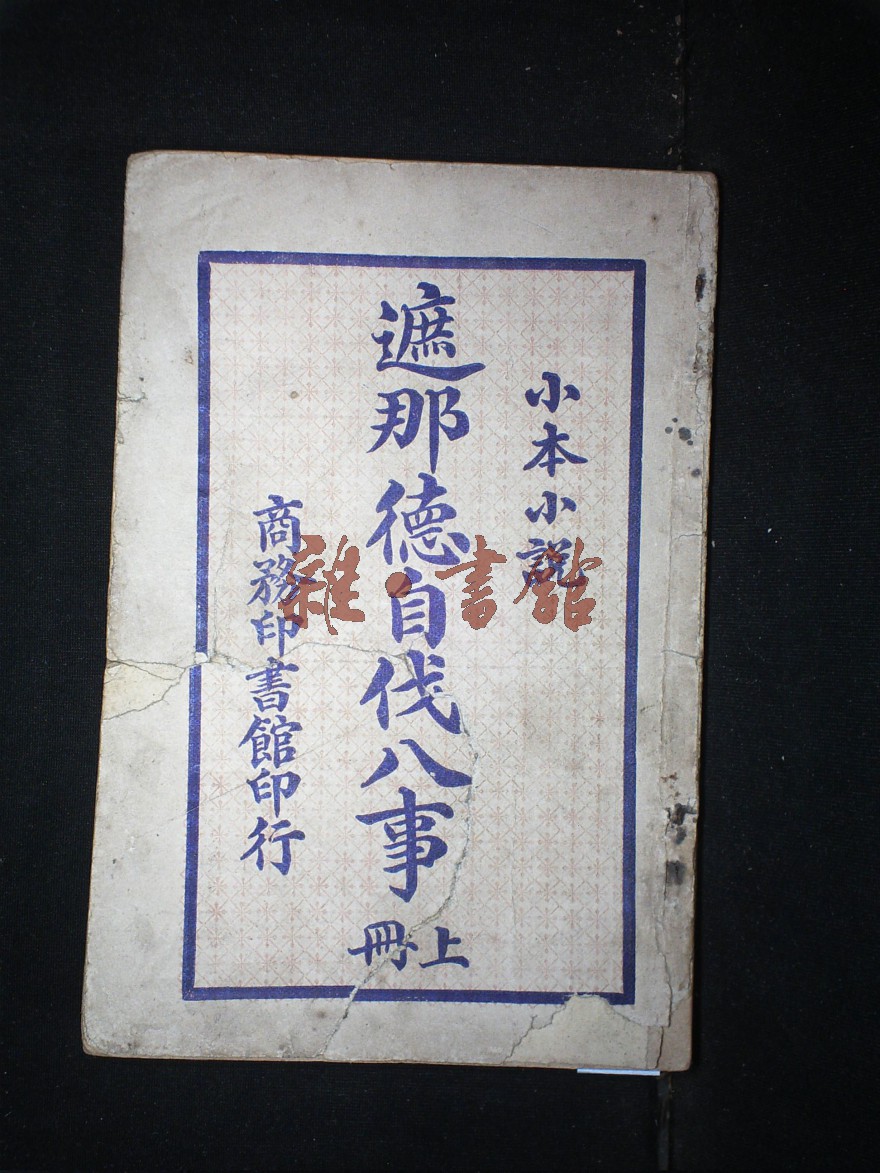 小本小說
遮那德自伐八事
上冊
商務印書館印行
雜·書館